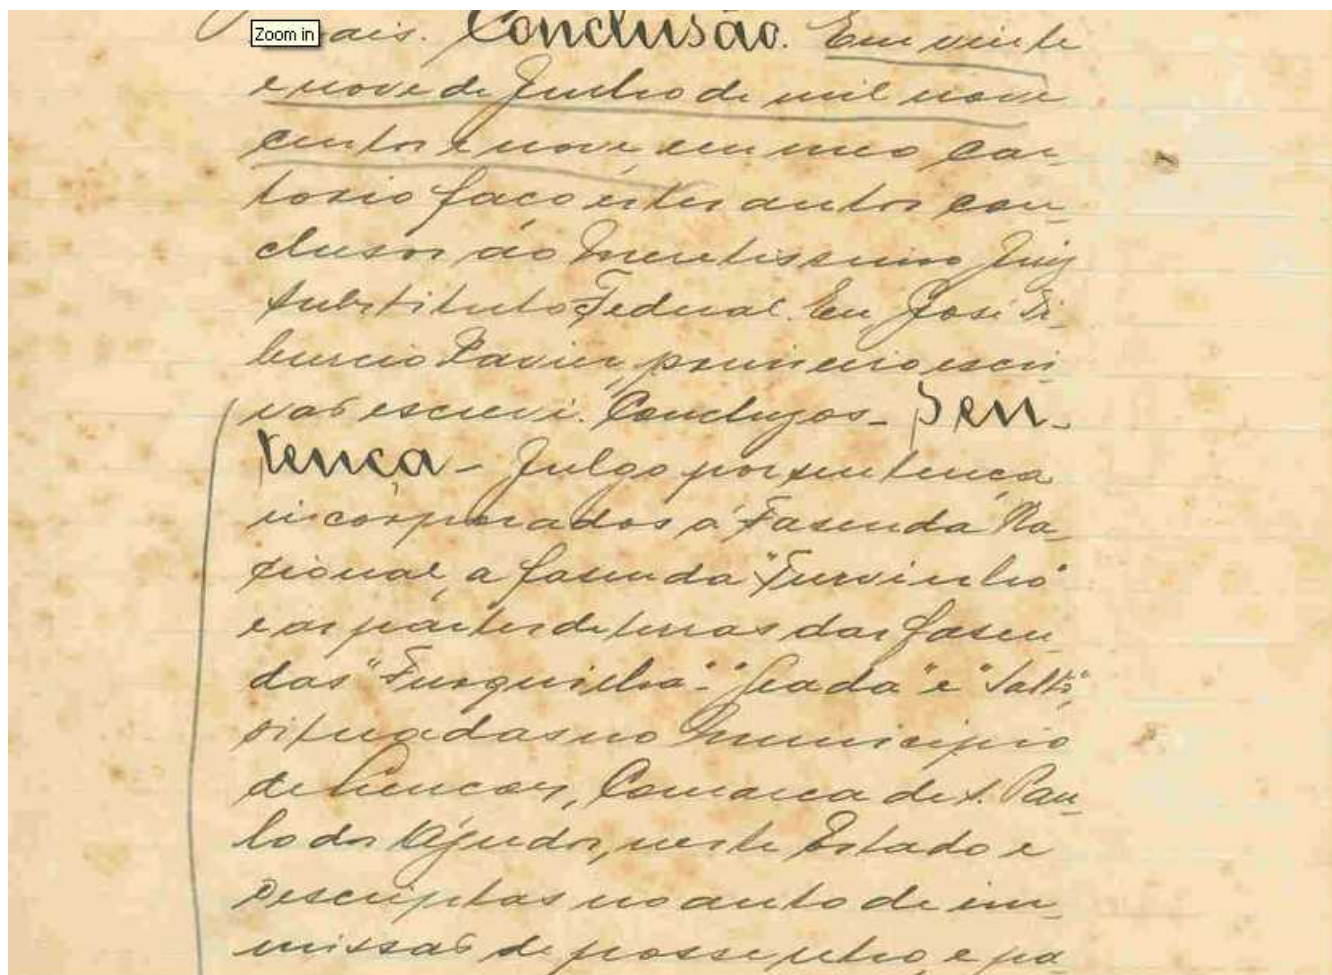 Zoom in
ais. Conclusão. Em vinte
e nove de Julho de mil nove
centos e nove, em meo car-
torio faço estes autos con-
clusos ao Meretissimo Juiz
Substituto Federal. Eu, José Ti-
burcio Xavier, primeiro escri-
vaõ escrevi. Conclusos - Sen-
tença - Julgo por sentença
incorporados á Fasenda Na-
cional, a fasenda "Turvinho"
e as partes de terras das fasen-
das "Turquinha" "Jeada" e "Salto",
situadas no Municipio
de Lençoes, Comarca de S. Pau-
lo dos Agudos, neste Estado e
descriptas no auto de im-
missaõ de posse retro, e pa